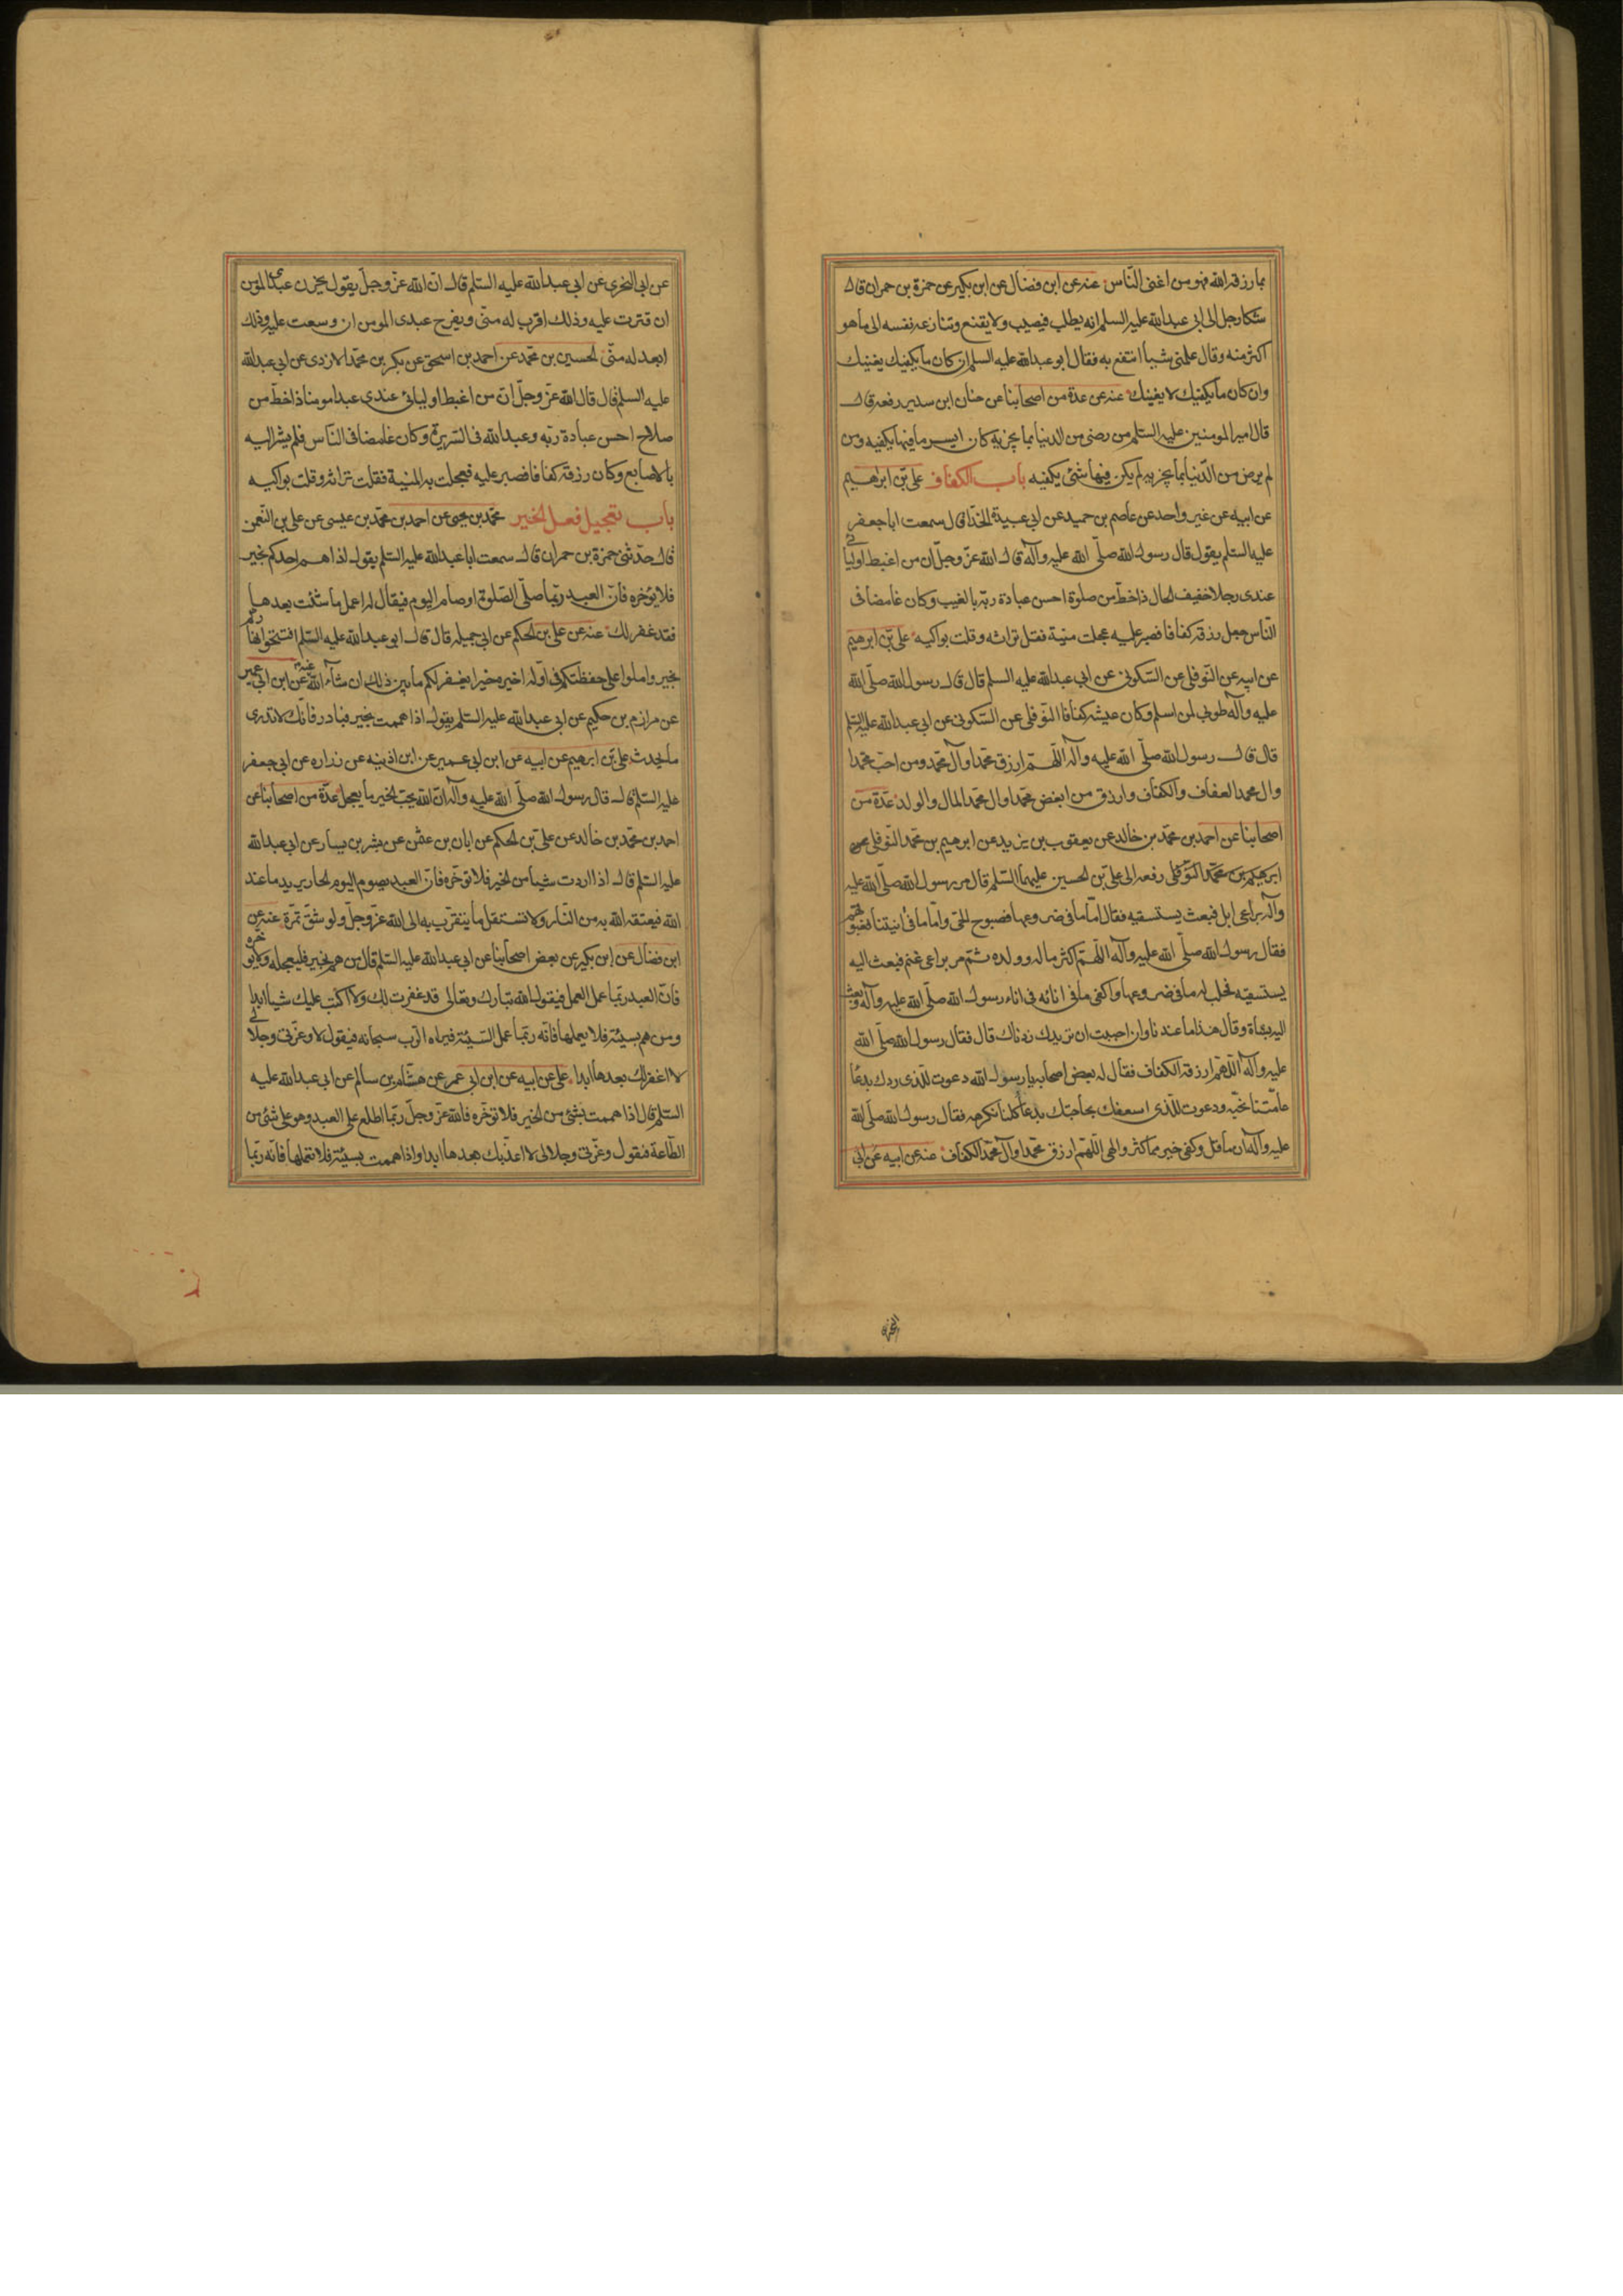 بما رزقه الله فهو من اغنى الناس عنه عن ابن فضال عن ابن بكير عن حمزة بن حمران قال
شكا رجل الى ابى عبدالله عليه السلم انه يطلب فيصيب ولا يقنع وتنازعه نفسه الى ما هو
اكثر منه وقال علمنى شيأ انتفع به فقال ابو عبدالله عليه السلم ان كان ما يكفيك يغنيك
وان كان ما يكفيك لا يغنيك عنه عن عدة من اصحابنا عن حنان ابن سدير رفعه قال
قال امير المومنين عليه السلم من رضى من الدنيا بما يجزيه كان ايسر ما فيها يكفيه ومن
لم يرض من الدنيا بما يجزيه لم يكن فيها شئ يكفيه باب الكفاف على بن ابرهيم
عن ابيه عن غير واحد عن عاصم بن حميد عن ابى عبيدة الحذا قال سمعت ابا جعفر
عليه السلم يقول قال رسول الله صلى الله عليه وآله قال الله عز وجل ان من اغبط اوليائى
عندى رجلا خفيف الحال ذا خط من صلوة احسن عبادة ربه بالغيب وكان غامضا فى
الناس جعل رزقه كفافا فصبر عليه عجلت منية فقل تراثه وقلت بواكيه على بن ابرهيم
عن ابيه عن النوفلى عن السكونى عن ابى عبدالله عليه السلم قال قال رسول الله صلى الله
عليه وآله طوبى لمن اسلم وكان عيشه كفافا النوفلى عن السكونى عن ابى عبدالله عليه السلم
قال قال رسول الله صلى الله عليه وآله اللهم ارزق محمدا وآل محمد ومن احب محمدا
وال محمد العفاف والكفاف وارزق من ابغض محمدا وال محمد المال والولد عدة من
اصحابنا عن احمد بن محمد بن خالد عن يعقوب بن يزيد عن ابرهيم بن محمد النوفلى عن
ابرهيم بن محمد النوفلى رفعه الى على بن الحسين عليهما السلم قال مر رسول الله صلى الله عليه
وآله براعى ابل فبعث يستسقيه فقال اما ما فى ضروعها فصبوح الحى واما ما فى انيتنا فغبوقهم
فقال رسول الله صلى الله عليه وآله اللهم اكثر ماله وولده ثم مر براعى غنم فبعث اليه
يستسقيه فحلب له ما فى ضروعها واكفى ما فى انائه فى اناء رسول الله صلى الله عليه وآله وبعث
اليه بشاة وقال هذا ما عندنا وان احببت ان نزيدك زدناك قال فقال رسول الله صلى الله
عليه وآله اللهم ارزقه الكفاف فقال له بعض اصحابه يا رسول الله دعوت للذى ردك بدعا
عامتنا نحبه ودعوت للذى اسعفك بحاجتك بدعا كلنا نكرهه فقال رسول الله صلى الله
عليه وآله ان ما قل وكفى خير مما كثر والهى اللهم ارزق محمدا وآل محمد الكفاف عنه عن ابيه عن ابى
عن ابى البخترى عن ابى عبدالله عليه السلم قال ان الله عز وجل يقول يحزن عبدى المومن
ان قترت عليه وذلك اقرب له منى ويفرح عبدى المومن ان وسعت عليه وذلك
ابعد له منى الحسين بن محمد عن احمد بن اسحق عن بكر بن محمد الازدى عن ابى عبدالله
عليه السلم قال قال الله عز وجل ان من اغبط اوليائى عندى عبدا مومنا ذا خط من
صلاح احسن عبادة ربه وعبد الله فى السريرة وكان غامضا فى الناس فلم يشر اليه
بالاصابع وكان رزقه كفافا فصبر عليه فعجلت به المنية فقلت تراثه وقلت بواكيه
باب تعجيل فعل الخير محمد بن يحيى عن احمد بن محمد بن عيسى عن على بن النعمن
قال حدثنى حمزة بن حمران قال سمعت ابا عبدالله عليه السلم يقول اذا هم احدكم بخير
فلا يؤخره فان العبد ربما صلى الصلوة او صام اليوم فيقال له اعمل ما شئت بعدها
فقد غفر لك عنه عن على بن الحكم عن ابى جميله قال قال ابو عبدالله عليه السلم افتتحوا نهاركم
بخير واملوا على حفظتكم فى اوله اخير وخيرا يغفر لكم ما بين ذلك ان شاء الله عنه عن ابن ابى عمير
عن مرازم بن حكيم عن ابى عبدالله عليه السلم يقول اذا هممت بخير فبادر فانك لا تدرى
ما يحدث على بن ابرهيم عن ابيه عن ابن ابى عمير عن ابن اذينه عن زراره عن ابى جعفر
عليه السلم قال قال رسول الله صلى الله عليه وآله ان الله يحب الخير ما يعجل عدة من اصحابنا عن
احمد بن محمد بن خالد عن على بن الحكم عن ابان بن عثمن عن بشر بن يسار عن ابى عبدالله
عليه السلم قال اذا اردت شيأ من الخير فلا توخره فان العبد يصوم اليوم الحار يريد ما عند
الله فيعتقه الله به من النار ولا تستقل ما يتقرب به الى الله عز وجل ولو شق تمرة عنه عن
ابن فضال عن ابن بكير عن بعض اصحابنا عن ابى عبدالله عليه السلم قال من هم بخير فليعجله ولا يوخره
فان العبد ربما عمل العمل فيقول الله تبارك وتعالى قد غفرت لك ولا اكتب عليك شيأ ابدا
ومن هم بسيئة فلا يعملها فانه ربما عمل السيئة فيراه الرب سبحانه فيقول لا وعزتى وجلالى
لا اغفر لك بعدها ابدا على عن ابيه عن ابن ابى عمر عن هشام بن سالم عن ابى عبدالله عليه
السلم قال اذا هممت بشئ من الخير فلا توخره فالله عز وجل ربما اطلع على العبد وهو على شئ من
الطاعة فيقول وعزتى وجلالى لا اعذبك بعدها ابدا واذا هممت بسيئة فلا تعملها فانه ربما